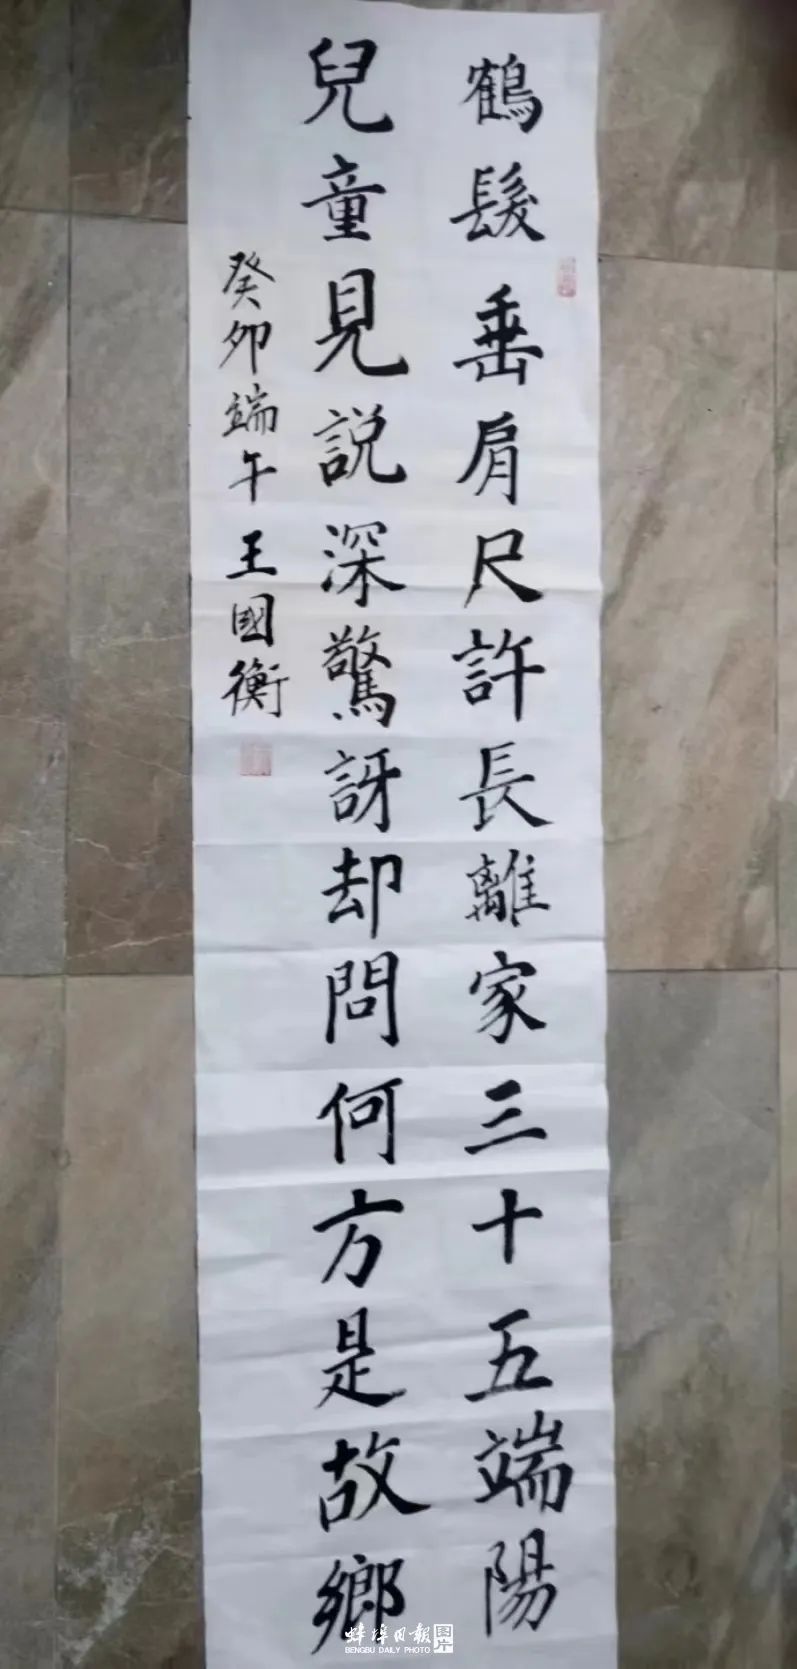 鶴髮垂肩尺許長離家三十五端陽
兒童見説深驚訝却問何方是故鄉
癸卯端午王國衡
蚌埠日報 图片
BENGBU DAILY PHOTO